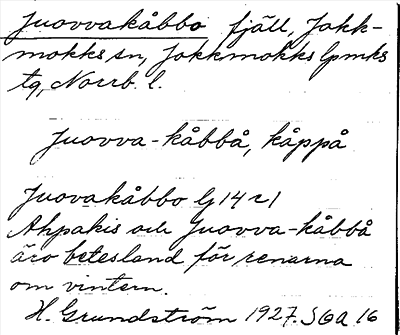 Juovvakåbbo fjäll, Jokk-
mokks sn, Jokkmokks lpmks
tg, Norrb. l.
Juovva-kåbbå, kåppå
Juovakåbbo G 14 r 1
Ahpakis och Juovva-kåbbå
äro betesland för renarna
om vintern.
H. Grundström 1927. SOA 16